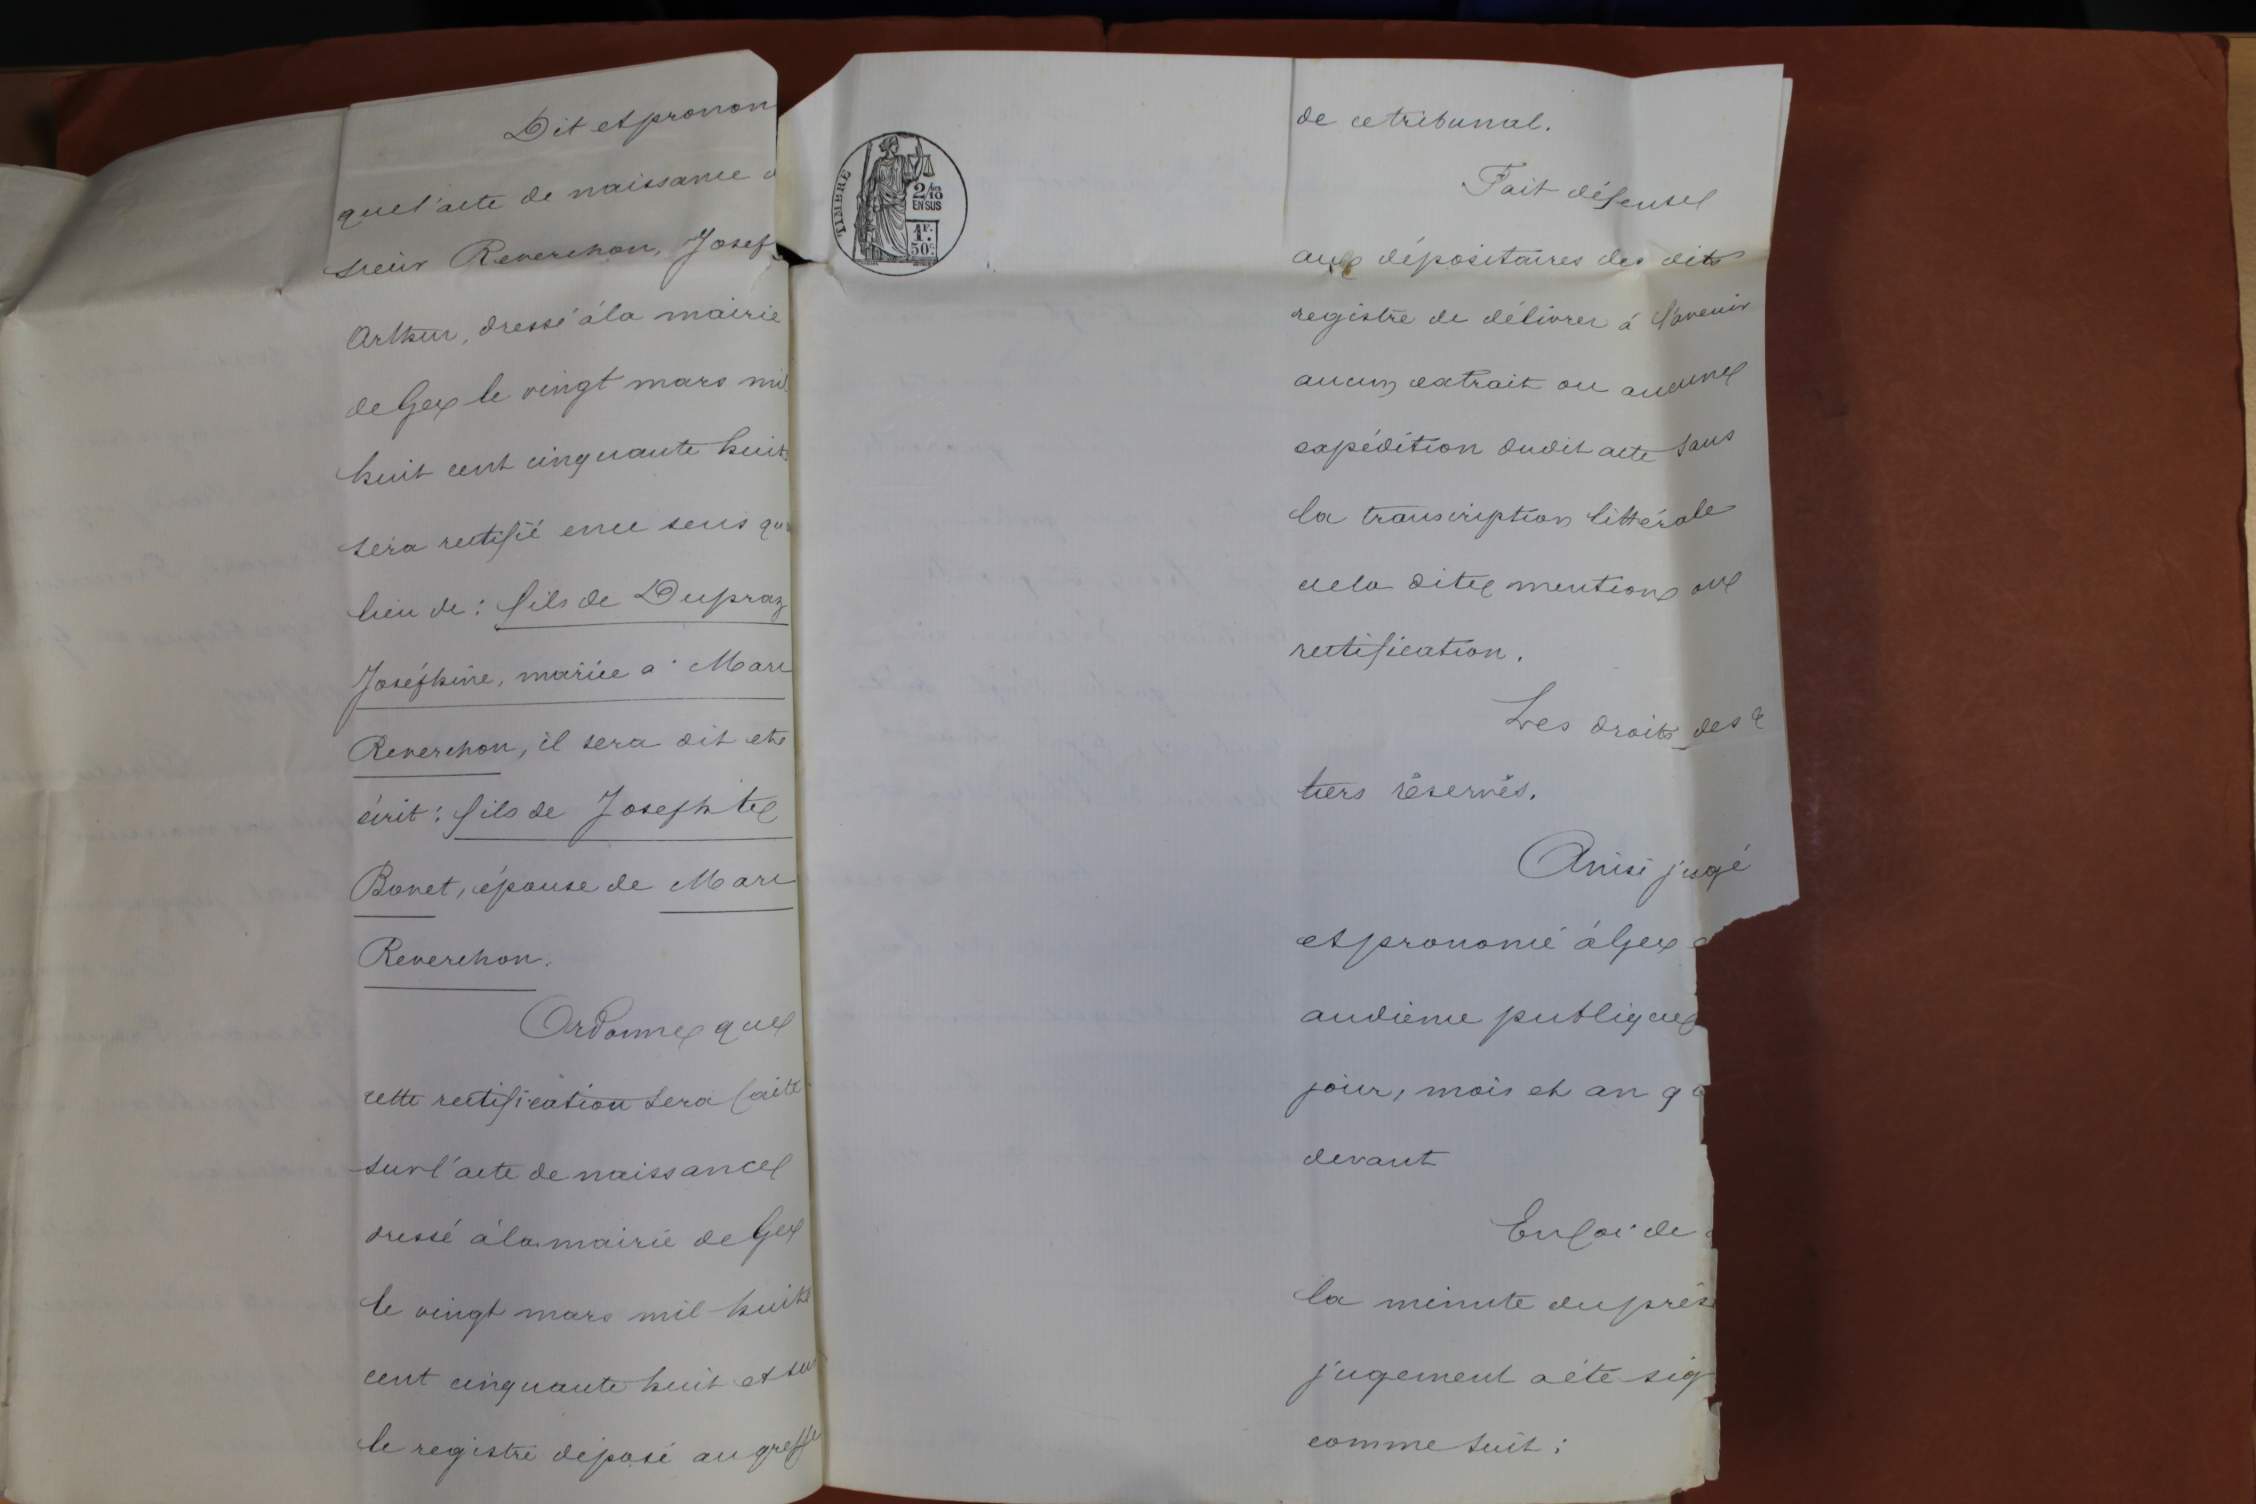 Dit et pronon
que l'acte de naissance d
sieur Reverchon, Josef
Arthur, dressé à la mairie
de Gex le vingt mars mil
huit cent cinquante huit
sera rectifié en ce sens qu'
lieu de : fils de Dupraz
Joséphine, mariée a Marc
Reverchon, il sera dit et
écrit : fils de Josephte
Bonet, épouse de Marc
Reverchon.
Ordonne que
cette rectification sera faite
sur l'acte de naissance
dressé à la mairie de Gex
le vingt mars mil huit
cent cinquante huit et sur
le registre déposé au greffe
TIMBRE
2/10
EN SUS
1F.
50c.
de ce tribunal.
Fait défense
aux dépositaires des dits
registre de délivrer à l'avenir
aucun extrait ou aucune
expédition dudit acte sans
la transcription littérale
de la dite mention ou
rectification.
Les droits des
tiers réservés.
Ainsi jugé
et prononcé à Gex e
audience publique
jour, mois et an q
devant
En foi de
la minute du prés
jugement a été sig
comme suit :